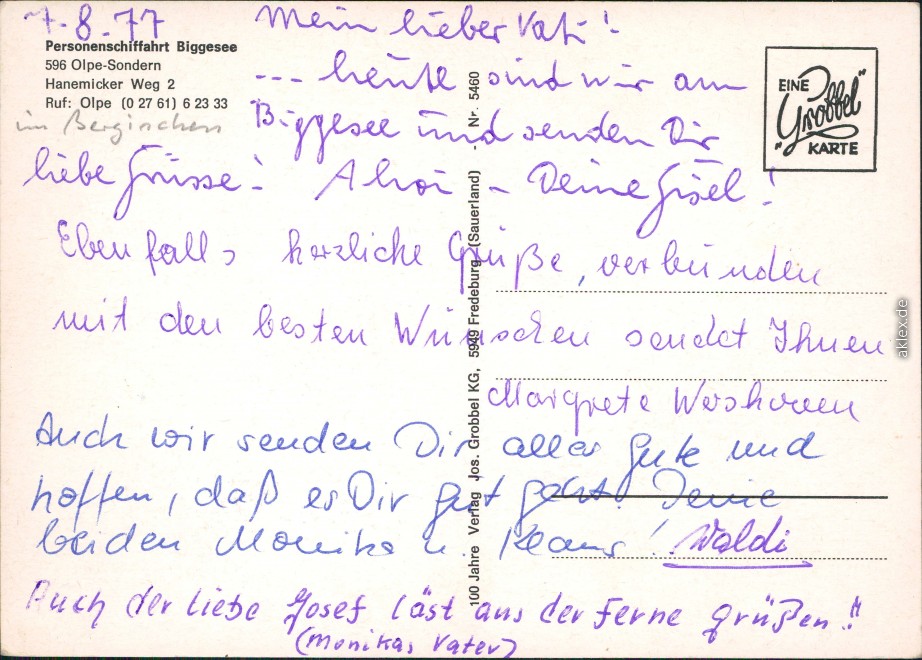 7.8.77
Personenschiffahrt Biggesee
596 Olpe-Sondern
Hanemicker Weg 2
Ruf: Olpe (0 27 61) 6 23 33
im Bergischen
Mein lieber Vati!
--- heute sind wir am
Biggesee und senden Dir
liebe Grüsse! Ahoi - Deine Gisel!
Ebenfalls herzliche Grüße, verbunden
mit den besten Wünschen sendet Ihnen
Margrete
Auch wir senden Dir alles Gute und
hoffen, daß es Dir gut geht. Deine
beiden Monika u. Klaus! Waldi
Auch der liebe Josef läst aus der Ferne grüßen!!
(Monikas Vater)
EINE
"Grobbel"
KARTE
100 Jahre Verlag Jos. Grobbel KG, 5949 Fredeburg (Sauerland) - Nr. 5460
aklex.de